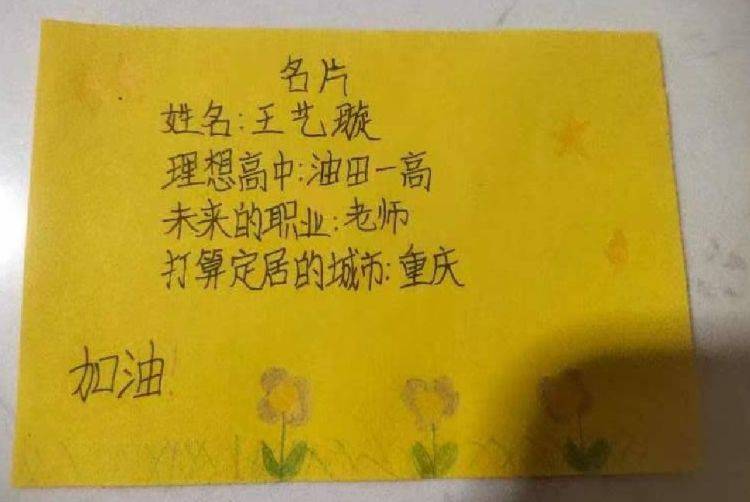 名片
姓名:王艺璇
理想高中:油田一高
未来的职业:老师
打算定居的城市:重庆
加油!